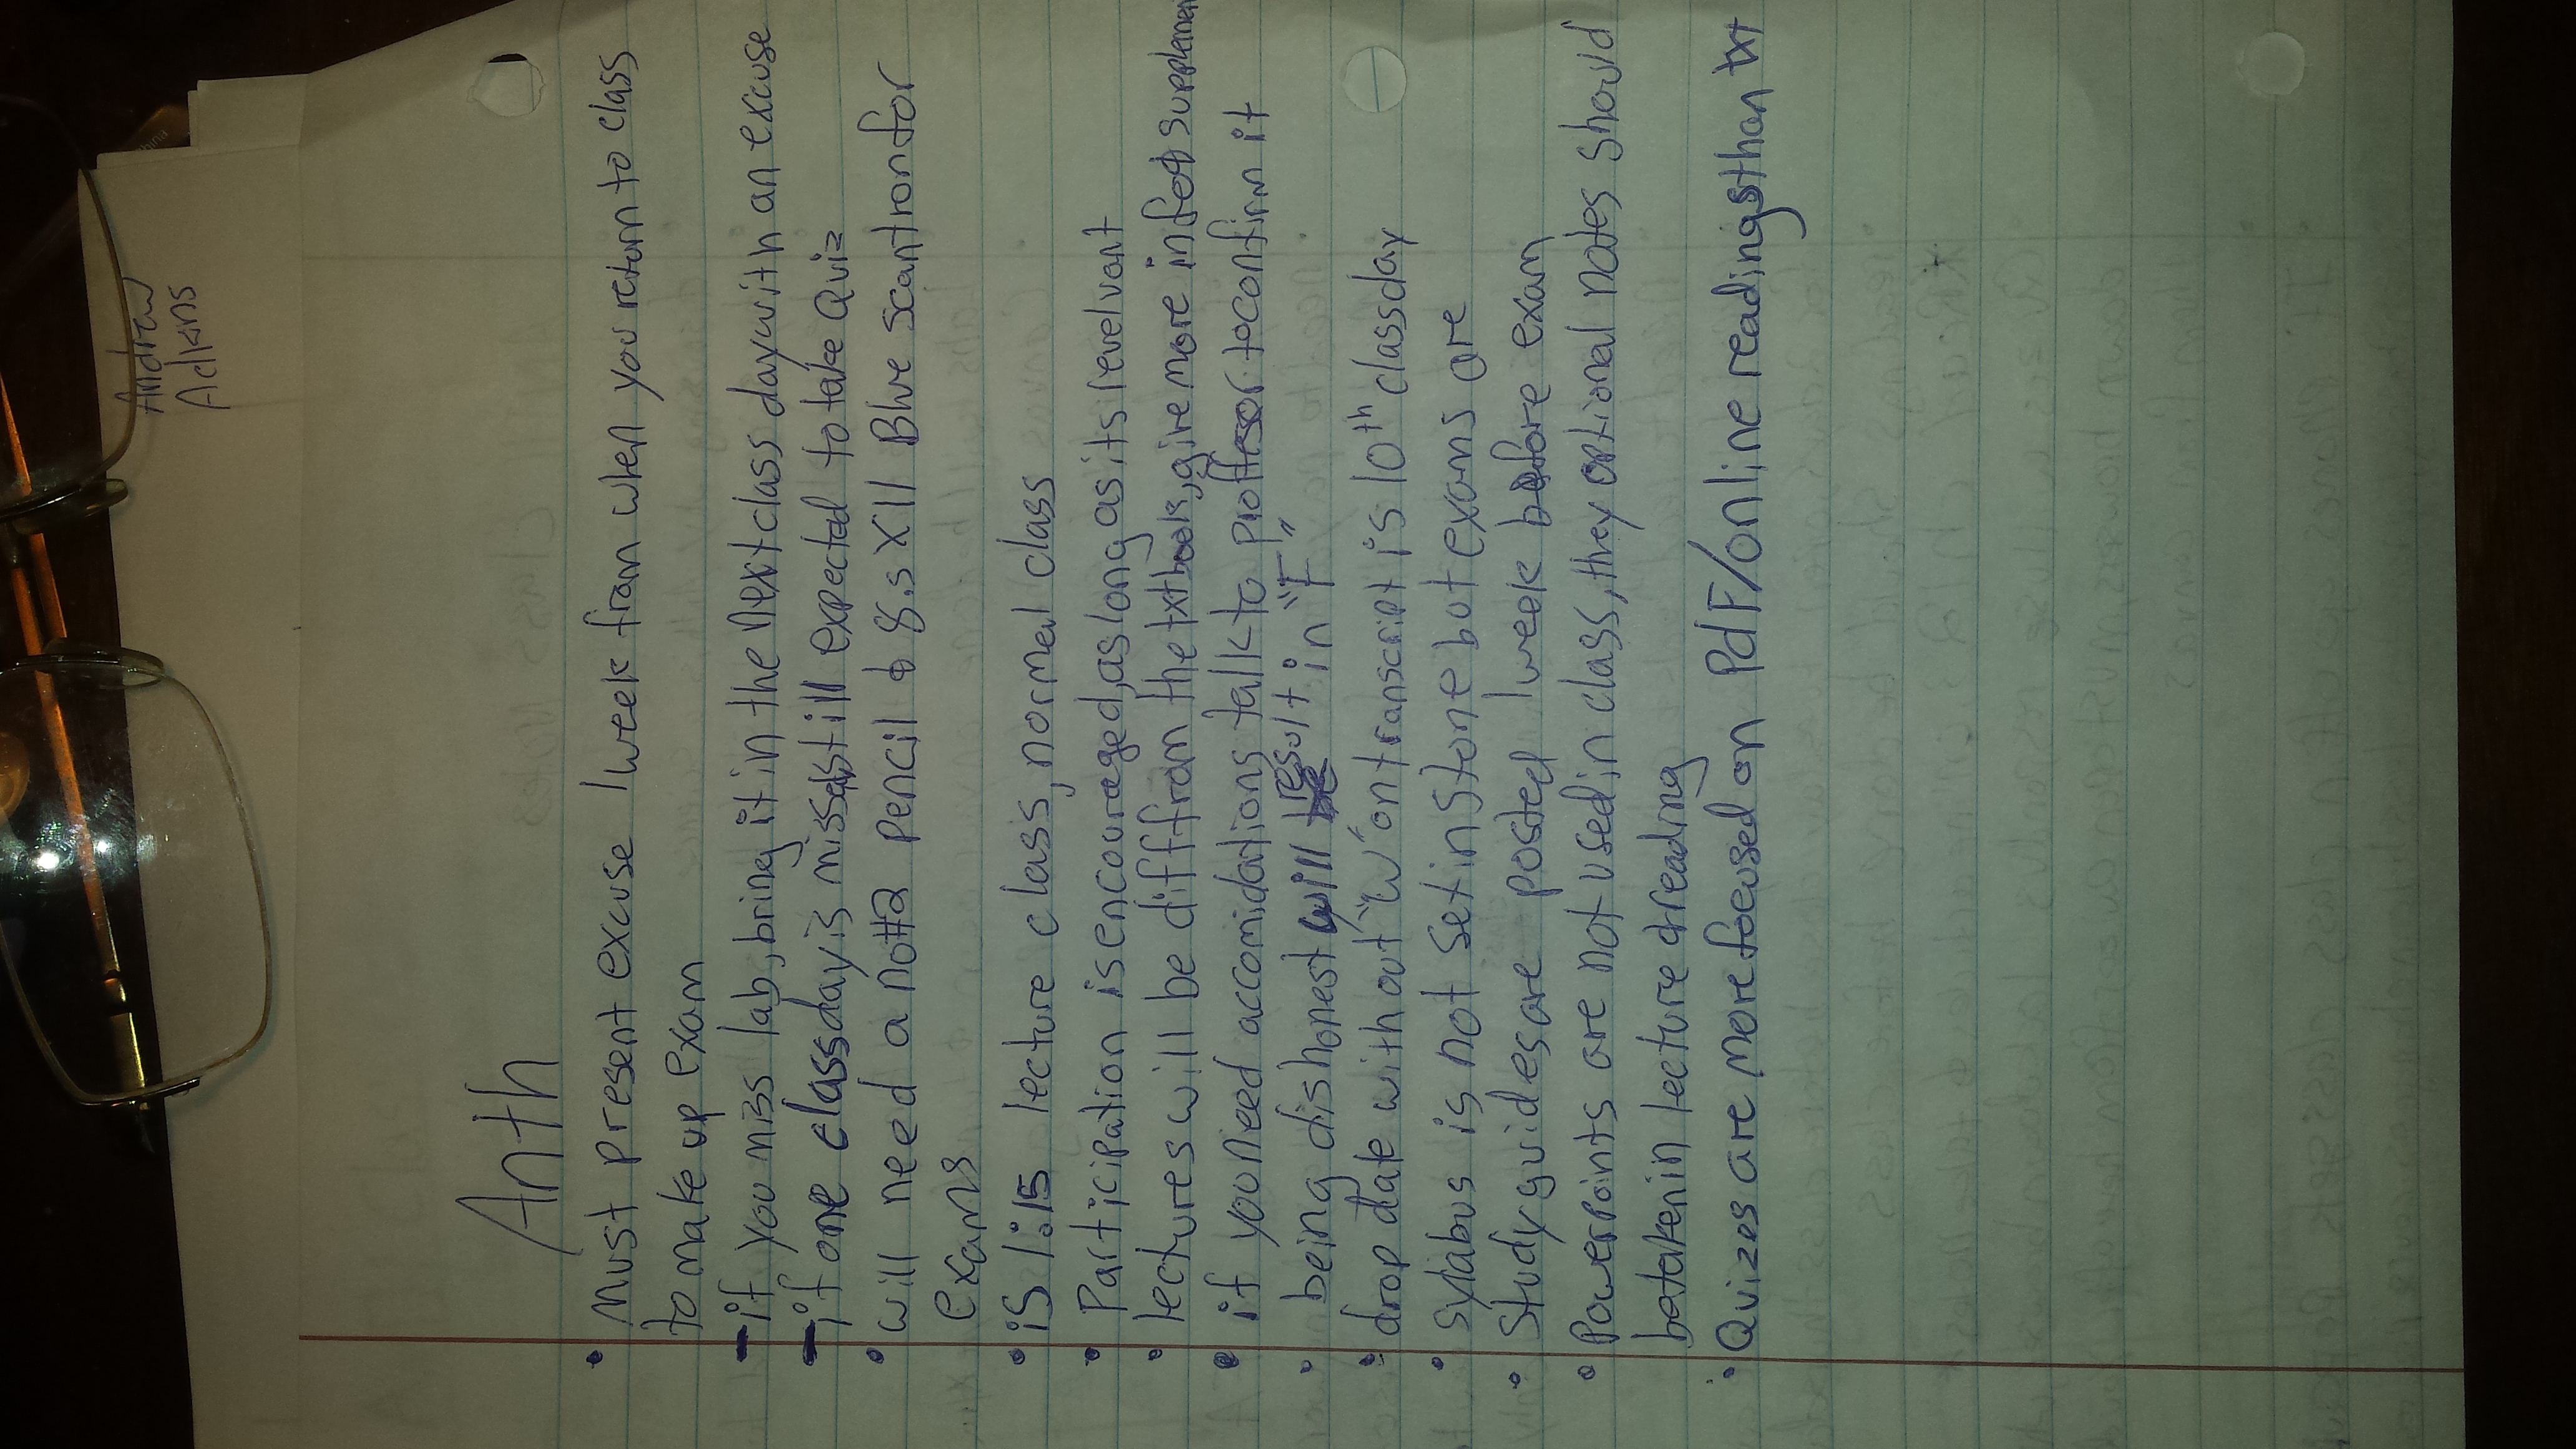 Andrew
Adkins
Anth
• Must present excuse 1 week from when you return to class
to make up exam
- if you miss lab, bring it in the next class day with an excuse
- if one class day is missed still expected to take Quiz
• will need a no#2 pencil & 8.5 X 11 Blue scantron for
exams
• is 1:15 lecture class, normal class
• Participation is encouraged, as long as its revelvant
• lectures will be diff from the txtbooks, give more info & supplemen
• if you need accomidations talk to proffesor to confirm it
• being dishonest will result in "F"
• drop date with out "W" on transcript is 10th class day
• sylabus is not set in stone but exams are
• Study guides are posted 1 week before exam
• Powerpoints are not used in class, they optional notes should
be taken in lecture & reading
• Quizes are more focused on PdF/online readings than txt